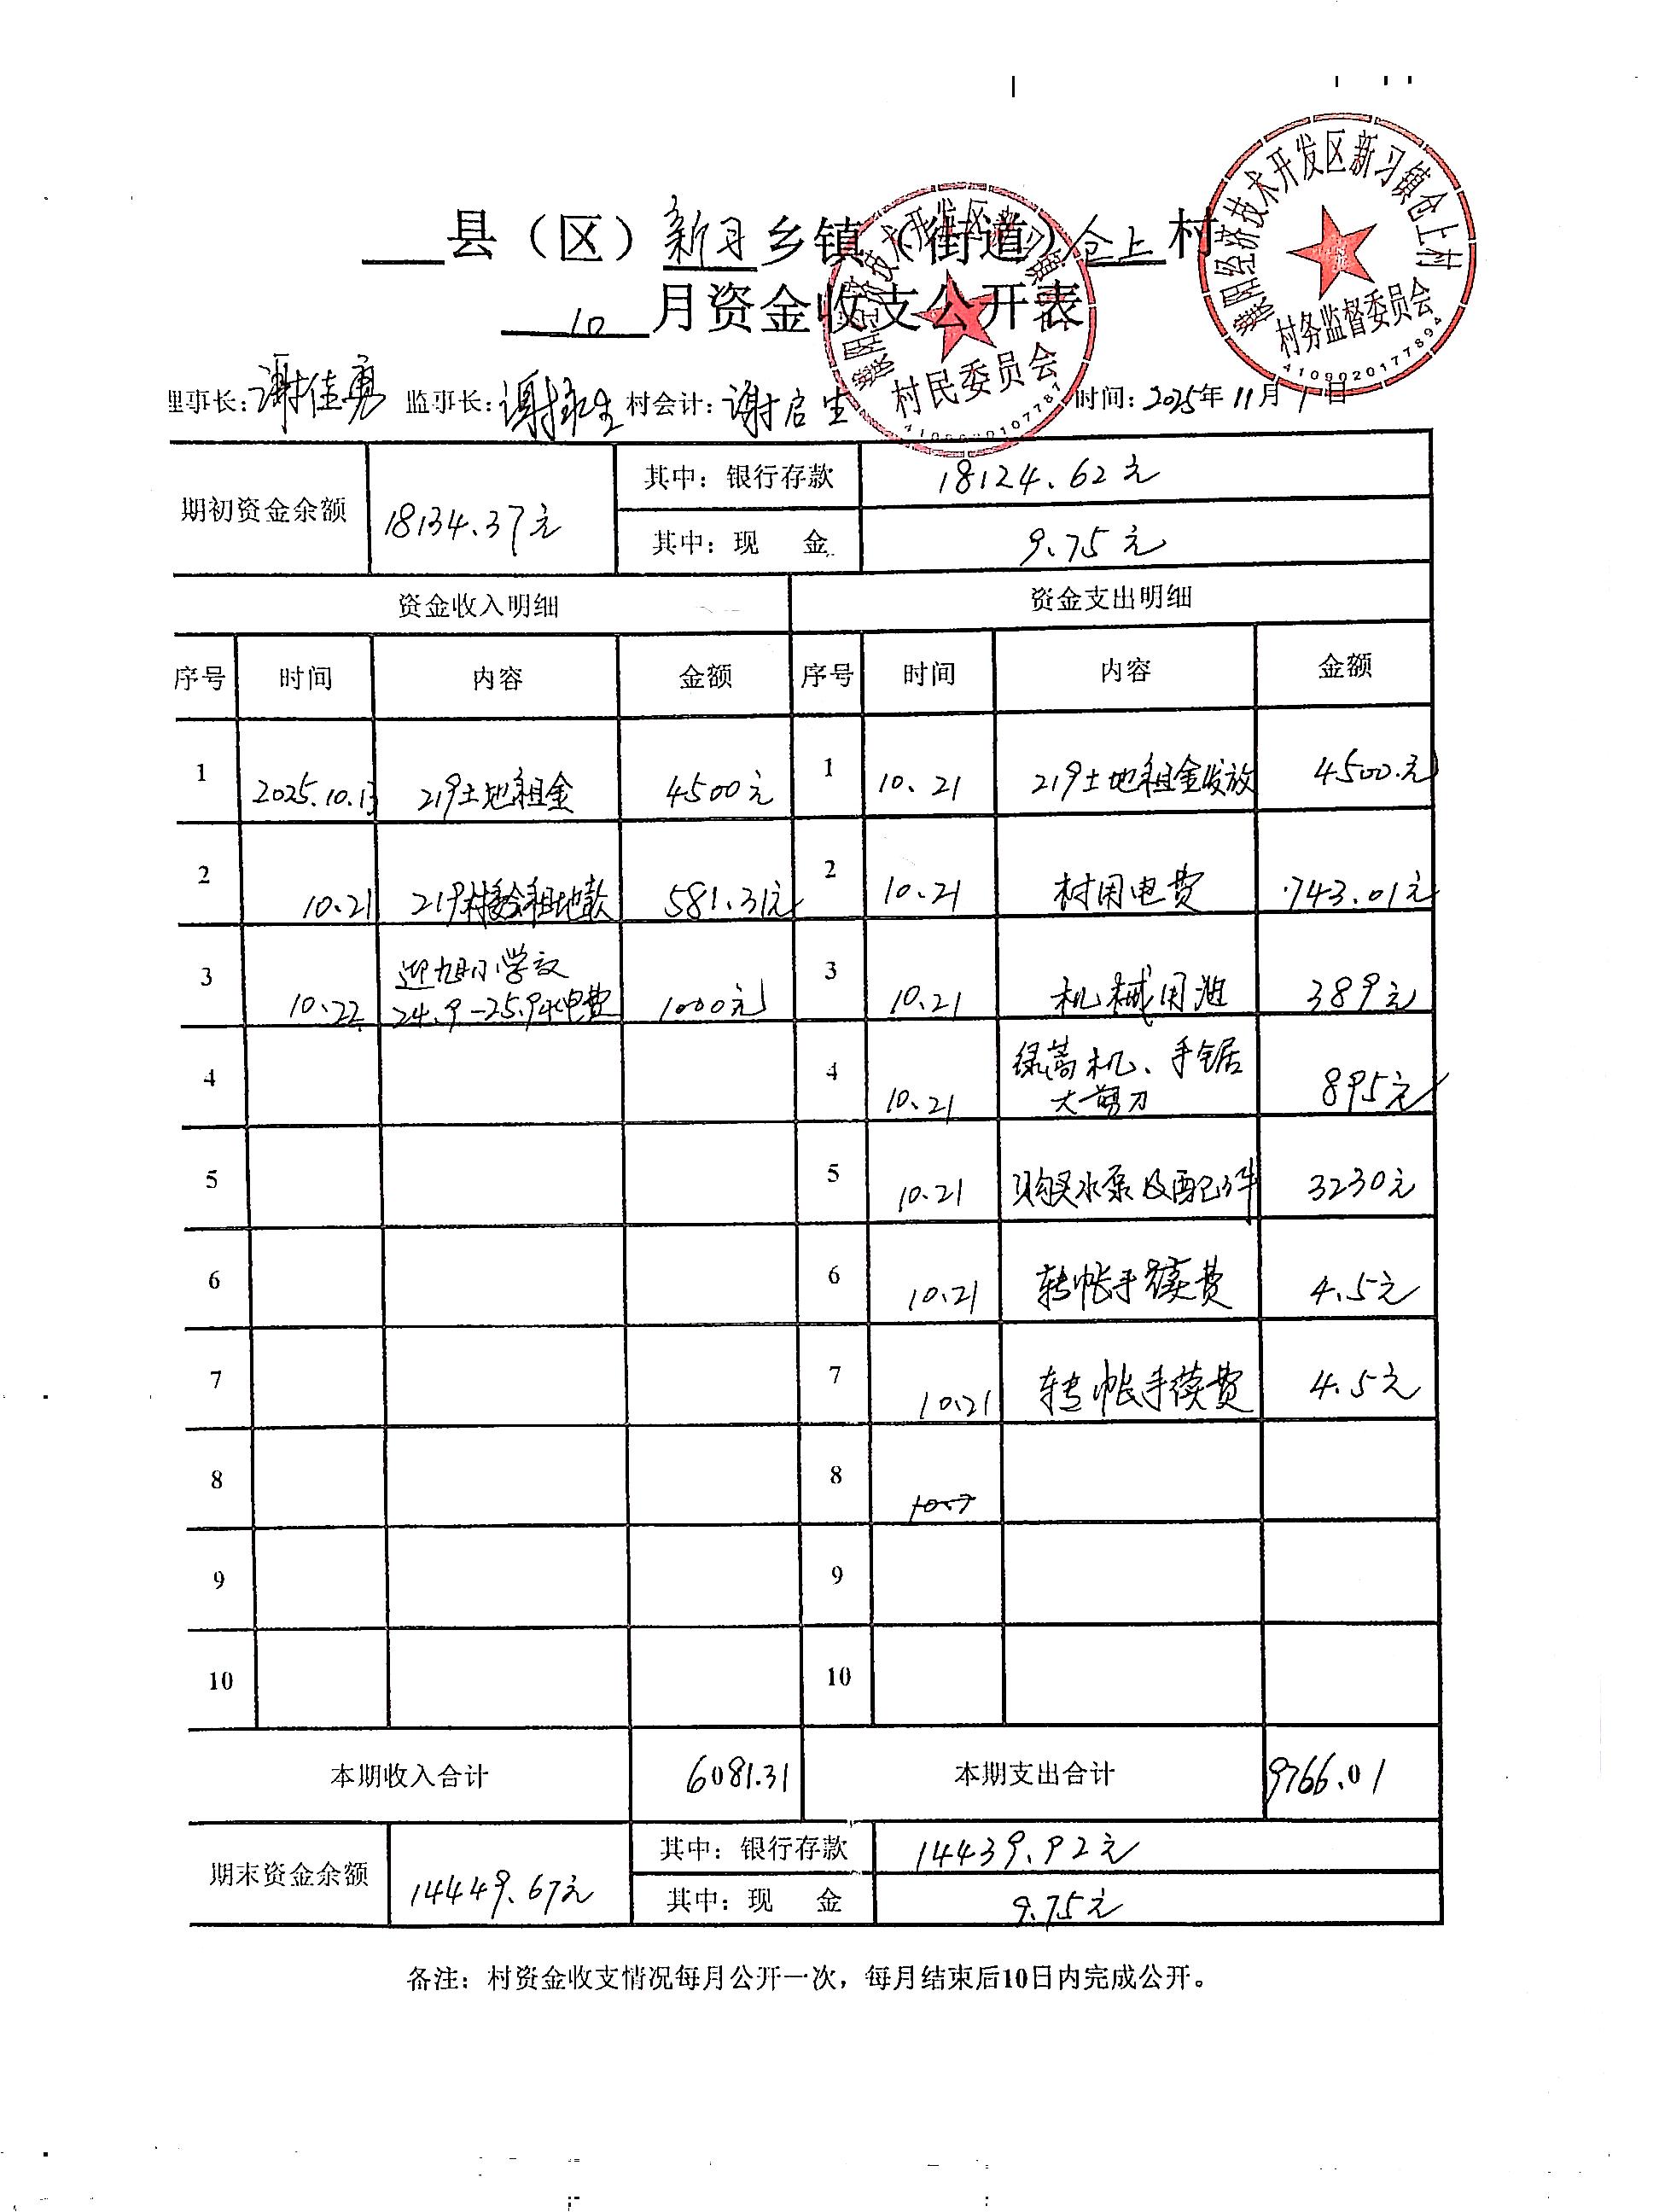 县（区）新习乡镇（街道）仓上村
10月资金收支公开表
理事长：谢佳勇 监事长：谢 生 村会计：谢启生 时间：2025年11月1日
期初资金余额 18134.37元 其中：银行存款 18124.62元
其中：现 金 9.75元
资金收入明细 资金支出明细
序号 时间 内容 金额 序号 时间 内容 金额
1 2025.10.13 219土地租金 4500元 1 10.21 219土地租金发放 4500.元
2 10.21 219村委会租地款 581.31元 2 10.21 村用电费 743.01元
3 10.22 迎旭小学校 24.9-25.9水电费 1000元 3 10.21 机械用油 389元
4 4 10.21 绿蒿机、手锯 大剪刀 895元
5 5 10.21 购买水泵及配件 3230元
6 6 10.21 转帐手续费 4.5元
7 7 10.21 转帐手续费 4.5元
8 8
9 9
10 10
本期收入合计 6081.31 本期支出合计 9766.01
期末资金余额 14449.67元 其中：银行存款 14439.92元
其中：现 金 9.75元
备注：村资金收支情况每月公开一次，每月结束后10日内完成公开。
濮阳经济技术开发区新习镇仓上村
村民委员会
濮阳经济技术开发区新习镇仓上村
村务监督委员会
4109020177894